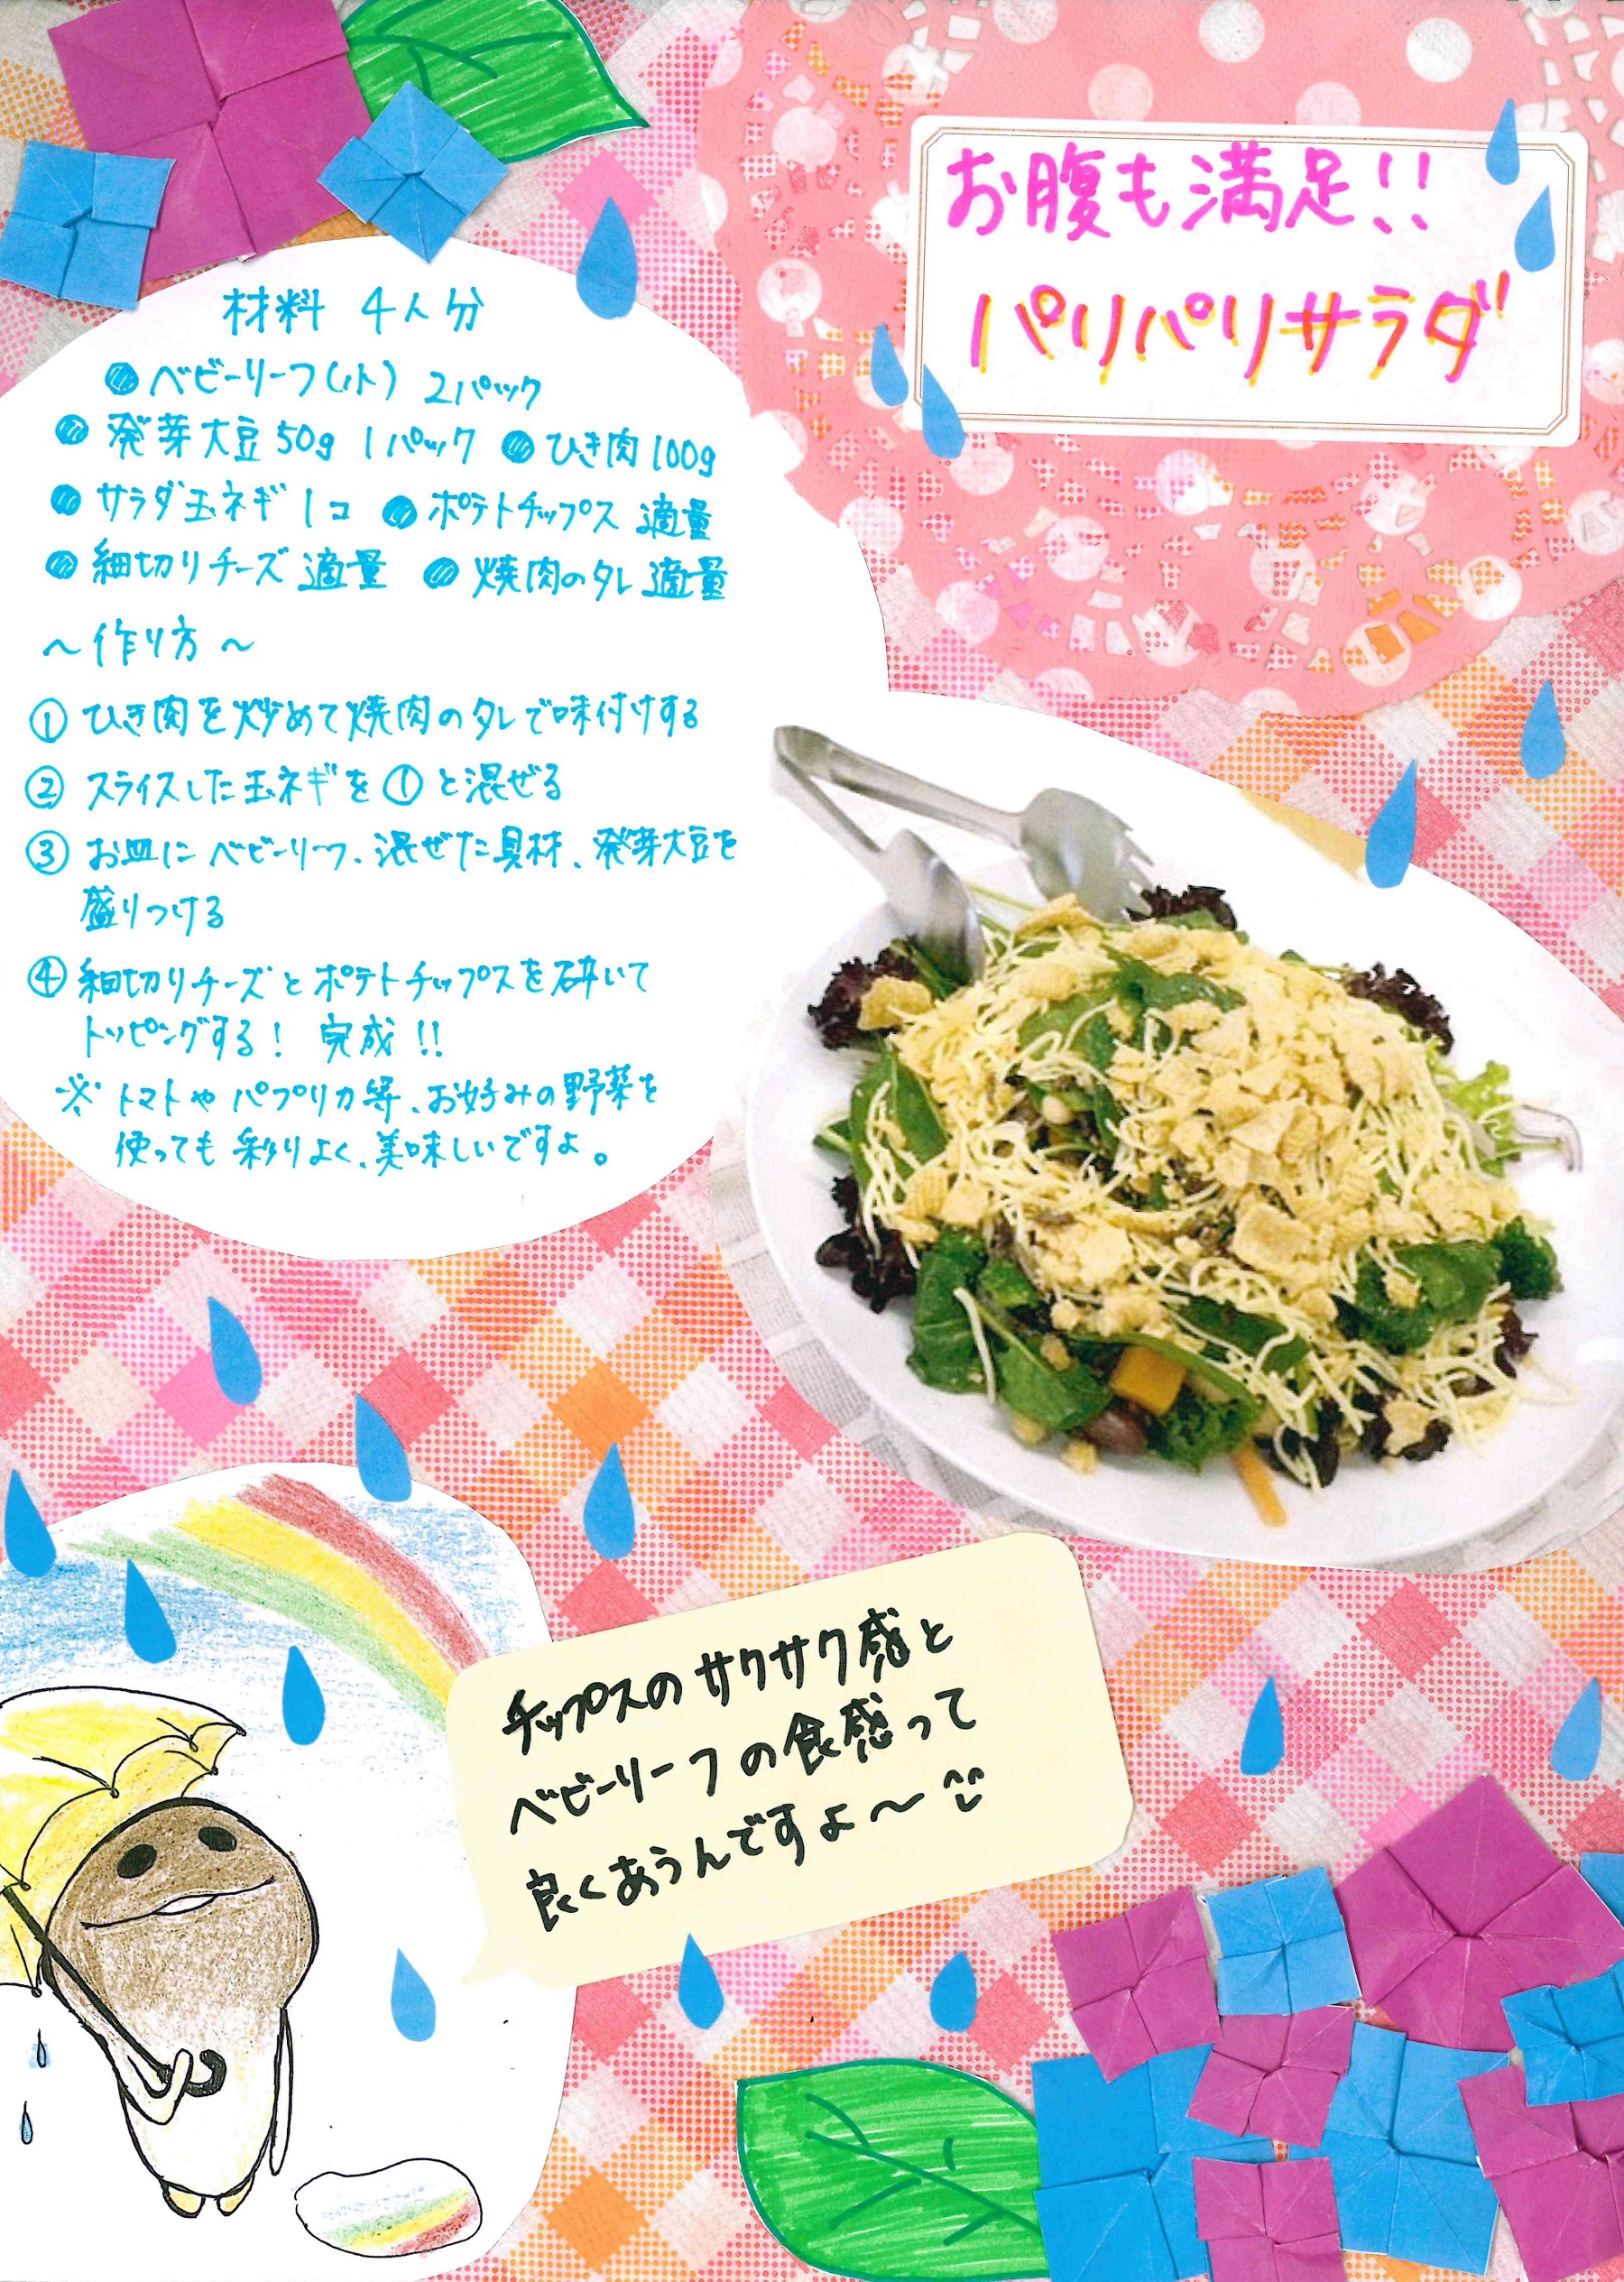 お腹も満足!!
パリパリサラダ
材料 4人分
●ベビーリーフ(小) 2パック
●発芽大豆50g 1パック ●ひき肉100g
●サラダ玉ネギ1コ ●ポテトチップス 適量
●細切りチーズ 適量 ●焼肉のタレ 適量
～作り方～
①ひき肉を炒めて焼肉のタレで味付けする
②スライスした玉ネギを①と混ぜる
③お皿にベビーリーフ、混ぜた具材、発芽大豆を
盛りつける
④細切りチーズとポテトチップスを砕いて
トッピングする! 完成!!
※トマトやパプリカ等、お好みの野菜を
使っても彩りよく、美味しいですよ。
チップスのサクサク感と
ベビーリーフの食感って
良くあうんですよ～